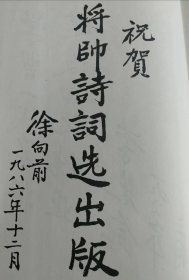 祝賀
将帥詩詞选出版
徐向前
一九八六年十二月